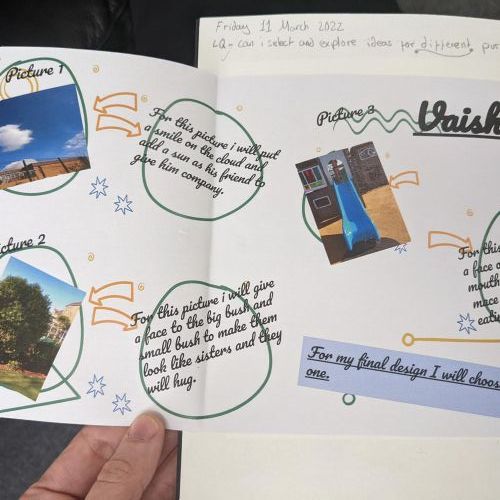 Friday 11 March 2022
LQ - can i select and explore ideas for different
Picture 1
For this picture i will put
a smile on the cloud and
add a sun as his friend to
give him company.
Picture 2
For this picture i will give
a face to the big bush and
small bush to make them
look like sisters and they
will hug.
Picture 3
Vaish
For this
a face
mouth
eati
For my final design I will choos
one.